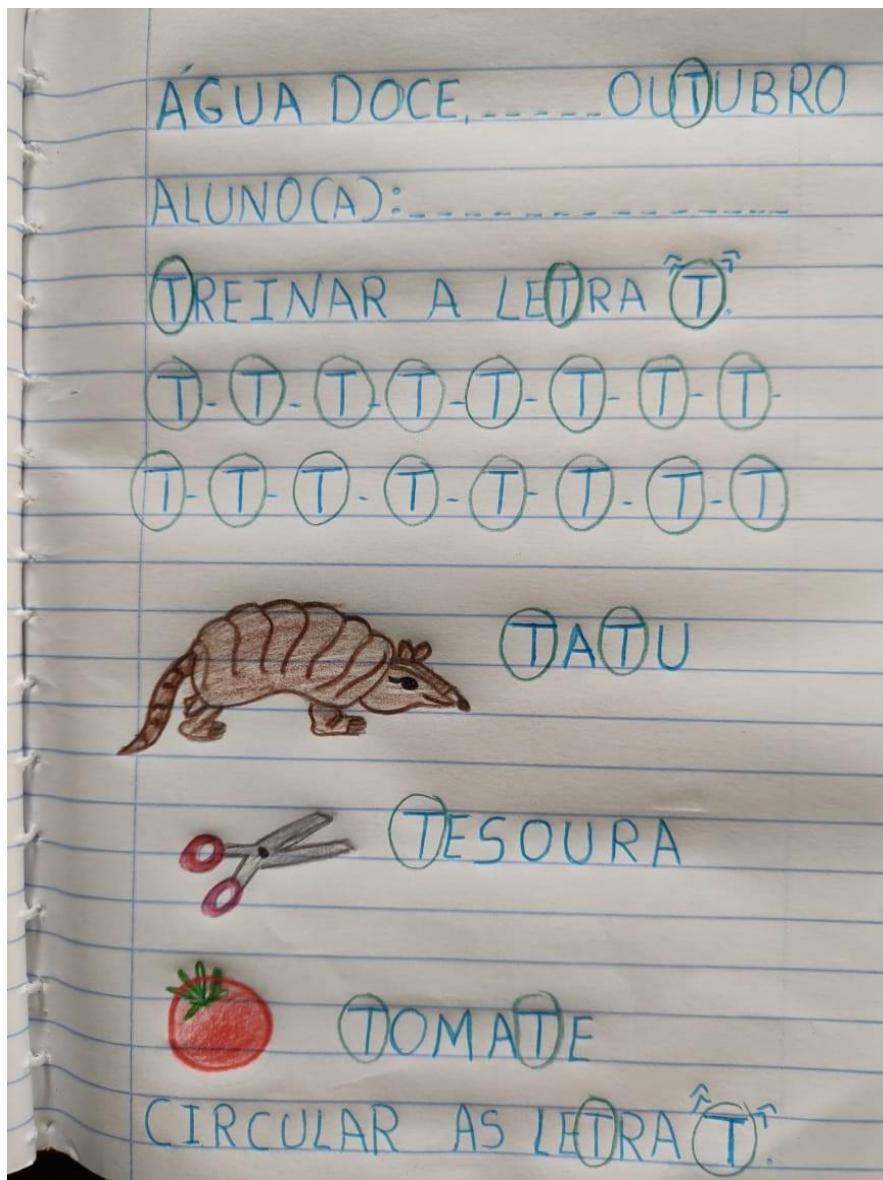 ÁGUA DOCE,_____OUTUBRO
ALUNO(A):_______________
TREINAR A LETRA "T".
T-T-T-T-T-T-T-T-
T-T-T-T-T-T-T-T
TATU
TESOURA
TOMATE
CIRCULAR AS LETRA "T".